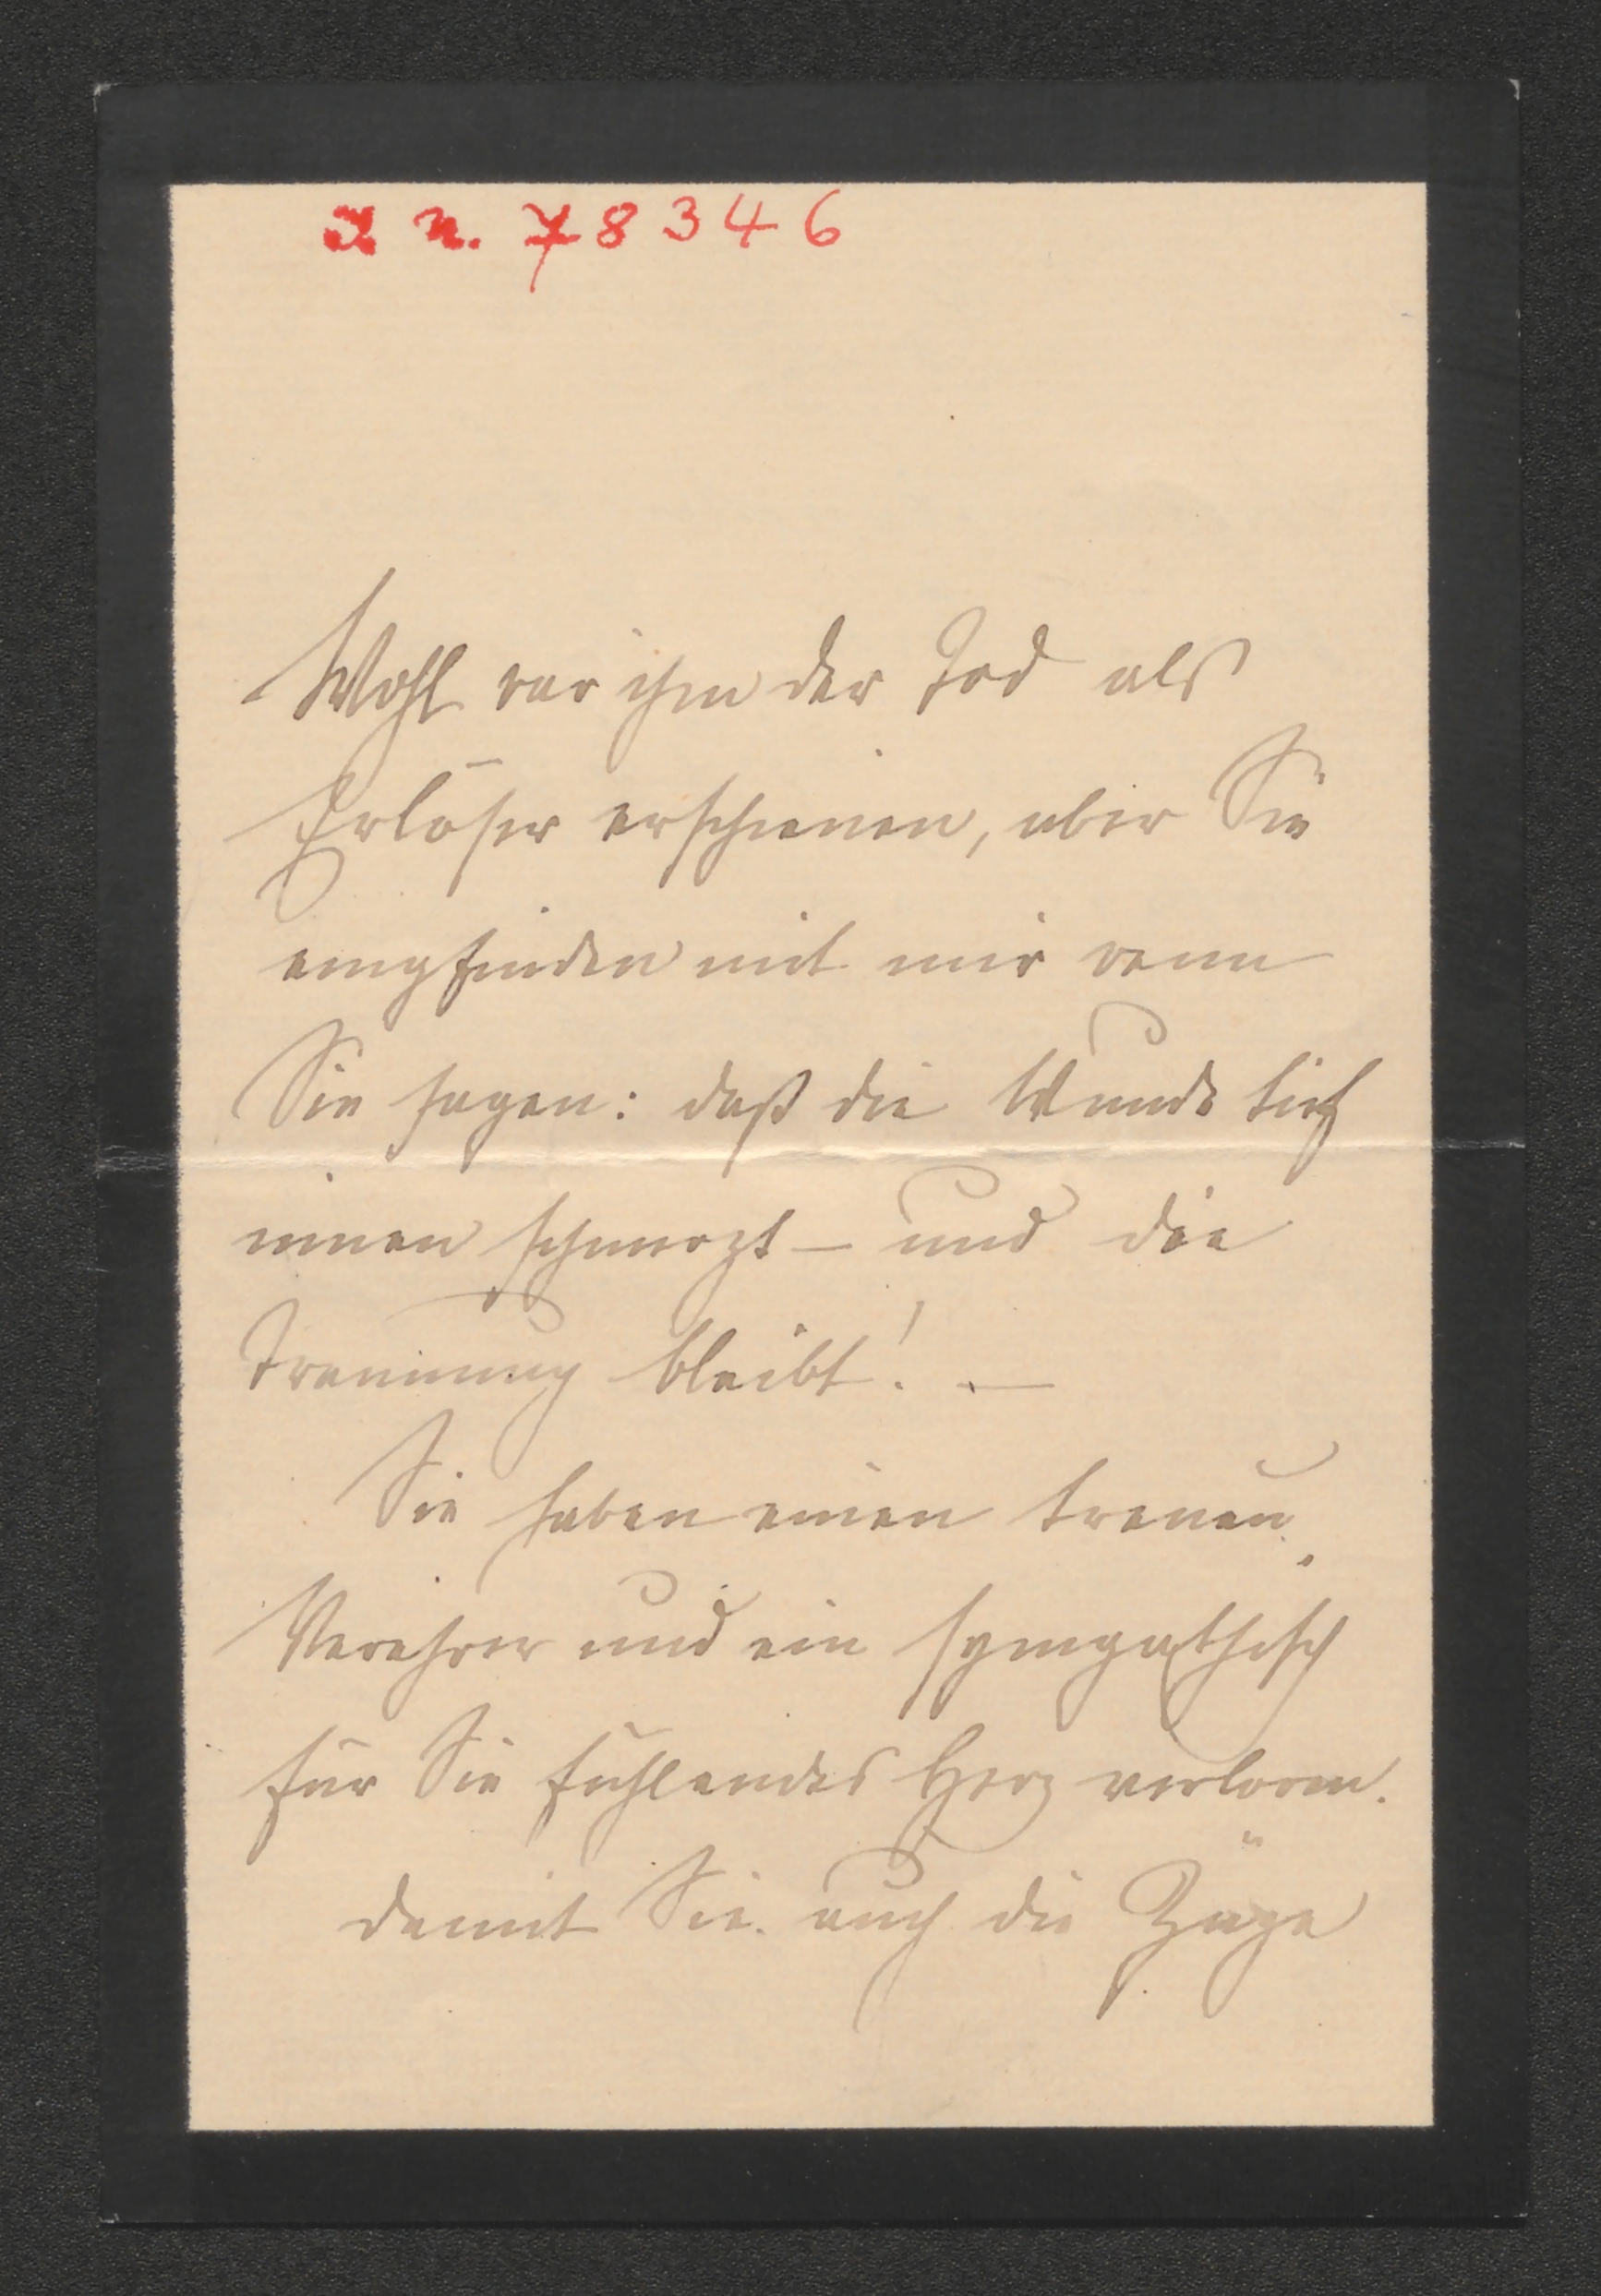 I. N. 78346
Wohl war ihm der Tod als
Erlöser erschienen, aber Sie
empfinden mit mir wenn
Sie sagen: daß die Wunde tief
innen schmerzt – und die
Trennung bleibt! –
Sie haben einen treuen
Verehrer und ein sympathisch
für Sie fühlendes Herz verloren.
Damit Sie auch die Züge